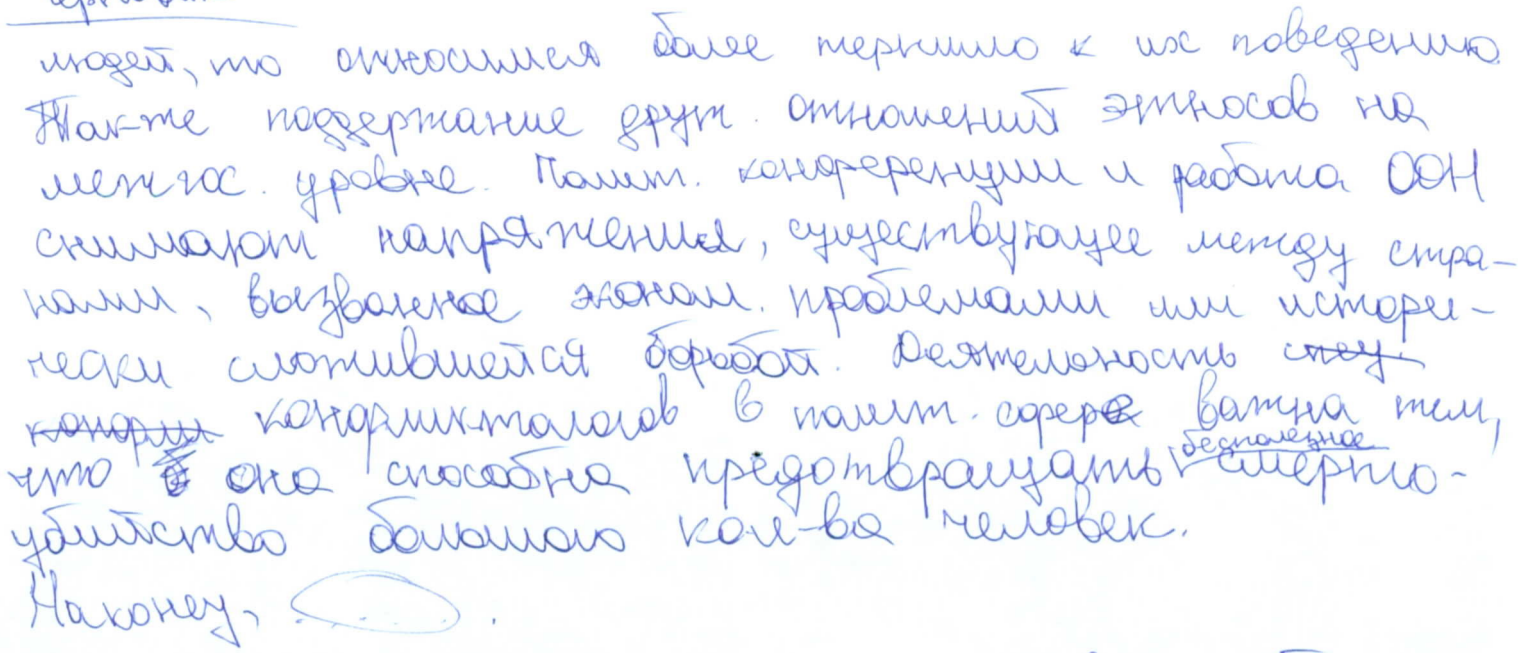 людей, то относимся более терпимо к их поведению
Также поддержание друж. отношений этносов на
межгос. уровне. Полит. конференции и работа ООН
снимают напряжения, существующее между стра-
нами, вызванное эконом. проблемами или истори-
чески сложившейся борьбой. Деятельность спец.
конфли конфликтологов в полит. сфере важна тем,
бесполезное
что она способна предотвращать смертно-
убийство большого кол-ва человек.
Наконец,